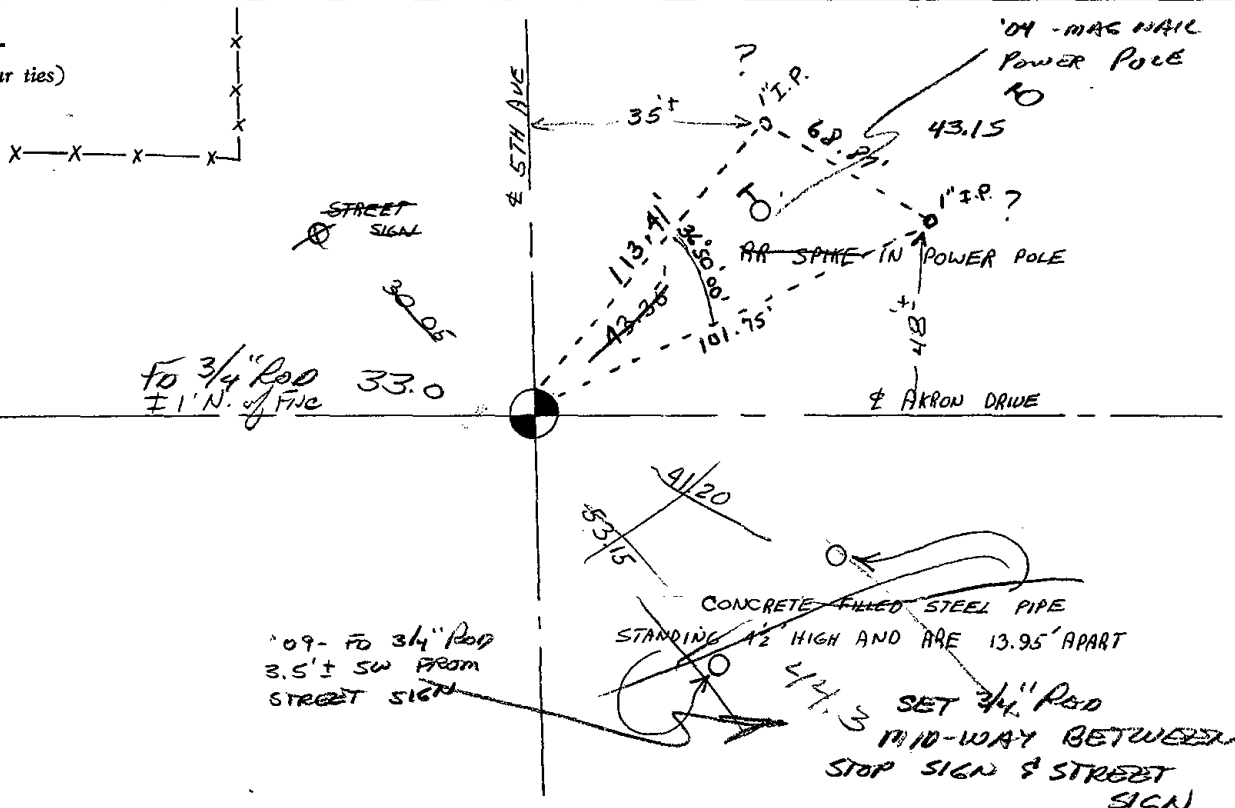 '04 - MAG NAIL
POWER POLE
43.15
ur ties)
X X X
X X X X
℄ 5TH AVE
?
1" I.P.
35'±
68.87'
1" I.P. ?
STREET
SIGN
RR SPIKE IN POWER POLE
113.41'
36°50'00"
43.36
101.75'
48'±
30.05
FD 3/4" ROD 33.0
± 1' N. of FNC
℄ AKRON DRIVE
41.20
53.15
CONCRETE FILLED STEEL PIPE
STANDING 4½' HIGH AND ARE 13.95' APART
'09 - FD 3/4" ROD
3.5'± SW FROM
STREET SIGN
44.3
SET 3/4" ROD
MID-WAY BETWEEN
STOP SIGN & STREET
SIGN